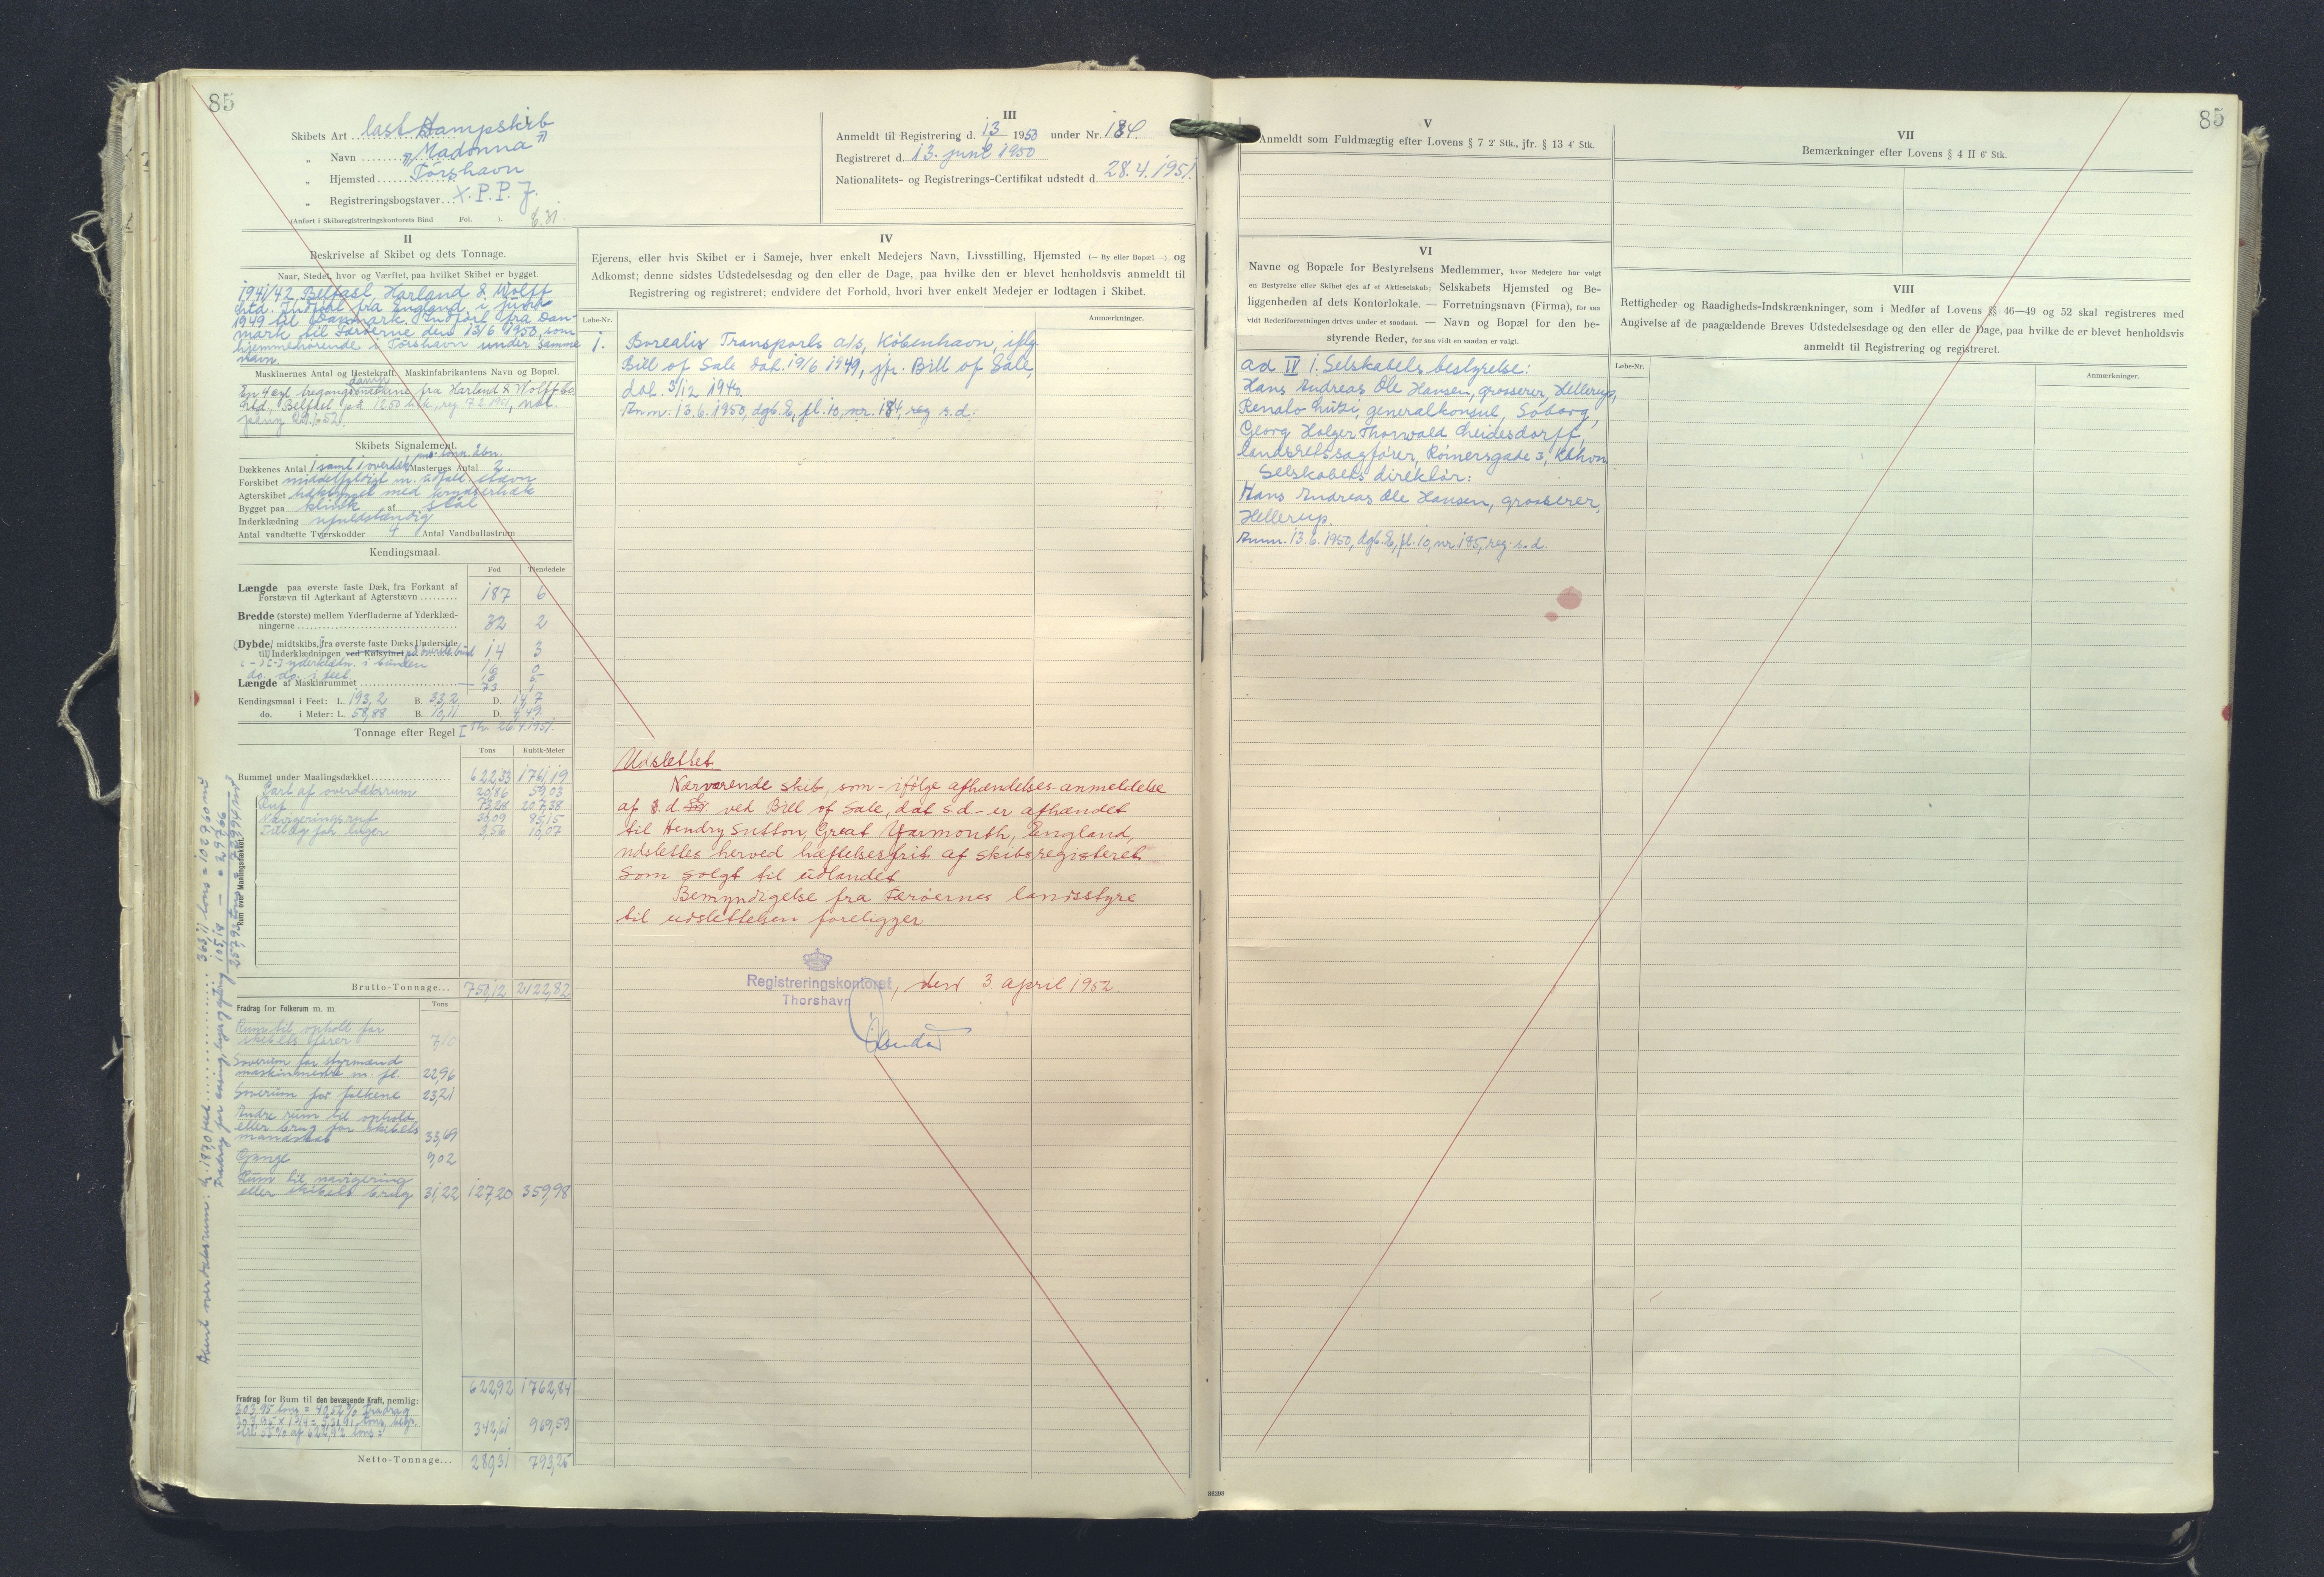 85
Skibets Art last Dampskib
„ Navn "Madonna"
„ Hjemsted Tórshavn
„ Registreringsbogstaver X.P.P.J.
(Anført i Skibsregistreringskontorets Bind Fol. ).
III
Anmeldt til Registrering d. 13 1950 under Nr. 184.
Registreret d. 13. juni 1950
Nationalitets- og Registrerings-Certifikat udstedt d. 28.4.1951.
II
Beskrivelse af Skibet og dets Tonnage.
Naar, Stedet, hvor og Værftet, paa hvilket Skibet er bygget.
1941/42 Belfast Harland & Wolff
Ltd. Indført fra England i juni
1949 til Danmark. Indført fra Dan-
mark til Færöerne den 13/6 1950 som
hjemmehørende i Tórshavn under samme
navn.
Maskinernes Antal og Hestekraft. Maskinfabrikantens Navn og Bopæl.
damp
fra Harland & Wolff
Ltd., Belfast på 1250
Skibets Signalement.
Dækkenes Antal 1 samt 1 overdæk Masternes Antal 2.
Forskibet middelfyldigt m. udfald. stævn
Agterskibet hækbygget med krydserhæk
Bygget paa klink af stål
Inderklædning ufuldstændig
Antal vandtætte Tværskodder 4 Antal Vandballastrum
Kendingsmaal.
Fod Tiendedele
Længde paa øverste faste Dæk, fra Forkant af
Forstævn til Agterkant af Agterstævn 187 6
Bredde (største) mellem Yderfladerne af Yderklæd-
ningerne 32 2
Dybde, midtskibs, fra øverste faste Dæks Underside
til Inderklædningen ved Kølsvinet 14 3
yderklædn. i bunden
Længde af Maskinrummet
Kendingsmaal i Feet: L. 193,2 B. 33,2 D. 14,7
do. i Meter: L. 58,88 B. 10,11 D. 4,49.
Tonnage efter Regel I Th. 26.4.1951.
Tons Kubik-Meter
Rummet under Maalingsdækket 622,33 1761,19
Part af overdæksrum 20,86 59,03
Ruf 73,28 207,38
Navigeringsruf 30,09 85,15
Tillæg for luger 3,56 10,07
Rum over Maalingsdækket.
Brutto-Tonnage... 750,12 2122,82
Fradrag for Folkerum m. m. Tons
Rum til ophold for
skibets fører 7,10
Soverum for styrmænd
maskinmestre m. fl. 22,96
Soverum for folkene 23,21
Andre rum til ophold
eller brug for skibets
mandskab 33,69
Gange 9,02
Rum til navigering
eller skibets brug 31,22 127,20 359,98
622,92 1762,84
Fradrag for Rum til den bevægende Kraft, nemlig:
303,95 tons = 40,52% fradrag
55% af 622,92 tons = 342,61 969,59
Netto-Tonnage... 280,31 793,25
IV
Ejerens, eller hvis Skibet er i Sameje, hver enkelt Medejers Navn, Livsstilling, Hjemsted (— By eller Bopæl —) og
Adkomst; denne sidstes Udstedelsesdag og den eller de Dage, paa hvilke den er blevet henholdsvis anmeldt til
Registrering og registreret; endvidere det Forhold, hvori hver enkelt Medejer er lodtagen i Skibet.
Løbe-Nr. Anmærkninger.
1. Borealis Transports a/s, København, iflg.
Bill of Sale dat. 19/6 1949, jfr. Bill of Sale,
dat. 3/12 1940.
Anm. 13.6.1950, dgb. E, fl. 10, nr. 184, reg s.d.
Udslettet
Nærværende skib, som - ifølge afhændelses-anmeldelse
af s.d. ved Bill of Sale, dat s.d - er afhændet
til Hendry Sutton, Great Yarmouth, England,
udslettes herved hæftelsesfrit af skibsregisteret
som solgt til udlandet
Bemyndigelse fra Færöernes landsstyre
til udslettelsen foreligger
Registreringskontoret, den 3 april 1952
Thorshavn
V
Anmeldt som Fuldmægtig efter Lovens § 7 2' Stk., jfr. § 13 4' Stk.
VI
Navne og Bopæle for Bestyrelsens Medlemmer, hvor Medejere har valgt
en Bestyrelse eller Skibet ejes af et Aktieselskab; Selskabets Hjemsted og Be-
liggenheden af dets Kontorlokale. — Forretningsnavn (Firma), for saa
vidt Rederiforretningen drives under et saadant. — Navn og Bopæl for den be-
styrende Reder, for saa vidt en saadan er valgt.
ad IV 1. Selskabets bestyrelse:
Hans Andreas Ole Hansen, grosserer, Hellerup,
generalkonsul, Söborg,
Georg Holger Thorwald Leidesdorff,
landsretssagfører, Römersgade 3, Kbhvn
Selskabets direktör:
Hans Andreas Ole Hansen, grosserer,
Hellerup.
Anm. 13.6.1950, dgb. E, fl. 10, nr 185, reg. s.d.
85
VII
Bemærkninger efter Lovens § 4 II 6' Stk.
VIII
Rettigheder og Raadigheds-Indskrænkninger, som i Medfør af Lovens §§ 46—49 og 52 skal registreres med
Angivelse af de paagældende Breves Udstedelsesdage og den eller de Dage, paa hvilke de er blevet henholdsvis
anmeldt til Registrering og registreret.
Løbe-Nr. Anmærkninger.
86298